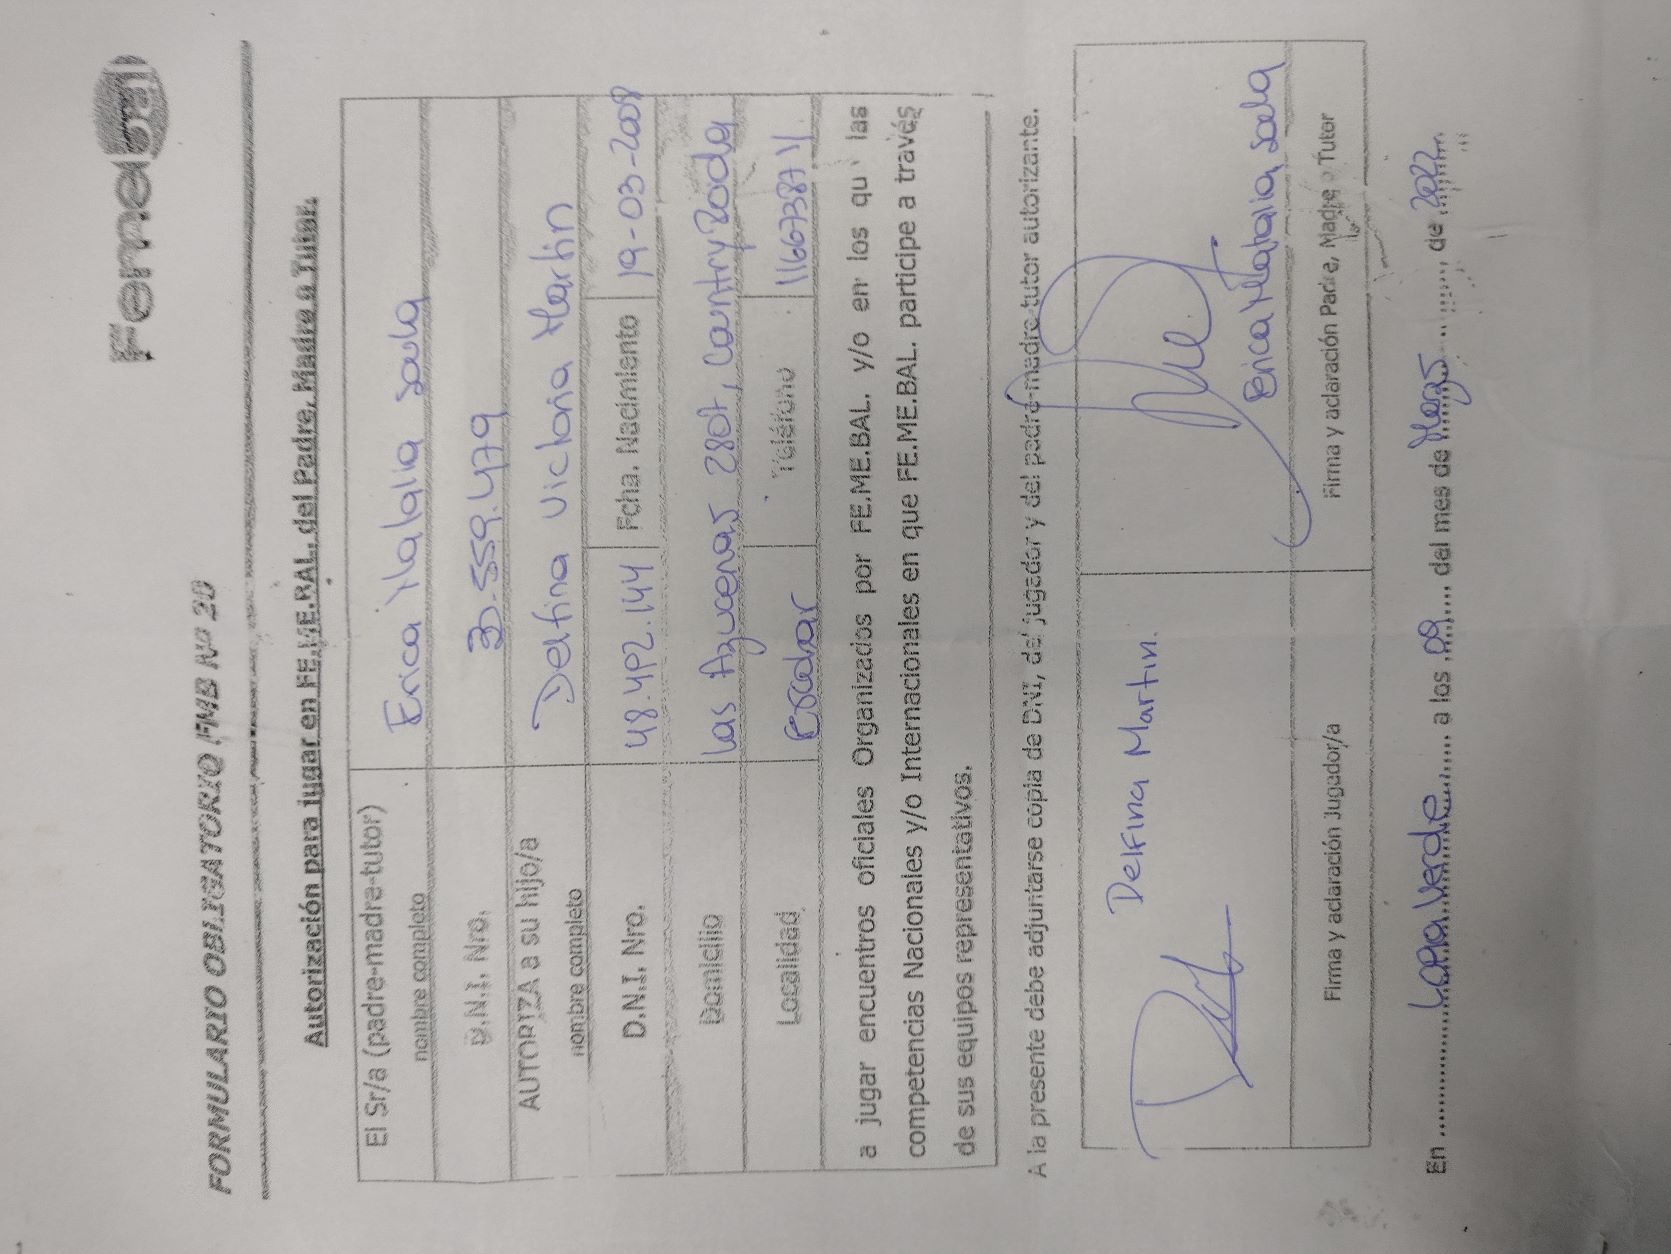 Femebal
FORMULARIO OBLIGATORIO FMB Nº 20
Autorización para jugar en FE.ME.BAL. del Padre, Madre o Tutor.
El Sr/a (padre-madre-tutor) Erica Natalia
nombre completo
D.N.I. Nro. 30.559.479
AUTORIZA a su hijo/a Delfina Victoria Martin
nombre completo
D.N.I. Nro. 48.492.144 Fcha. Nacimiento 19-03-2008
Domicilio Las Azucenas 2807, Country
Localidad Escobar Teléfono
a jugar encuentros oficiales Organizados por FE.ME.BAL. y/o en los qu las
competencias Nacionales y/o Internacionales en que FE.ME.BAL. participe a través
de sus equipos representativos.
A la presente debe adjuntarse copia de DNI, del jugador y del padre-madre-tutor autorizante.
Delfina Martin.
Erica Natalia
Firma y aclaración Jugador/a Firma y aclaración Padre, Madre o Tutor
En Loma Verde a los 09 del mes de Marzo de 2022